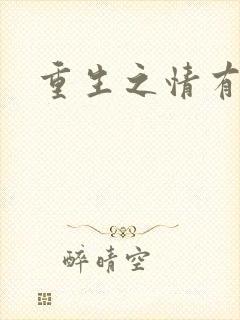 重生之情有
醉晴空